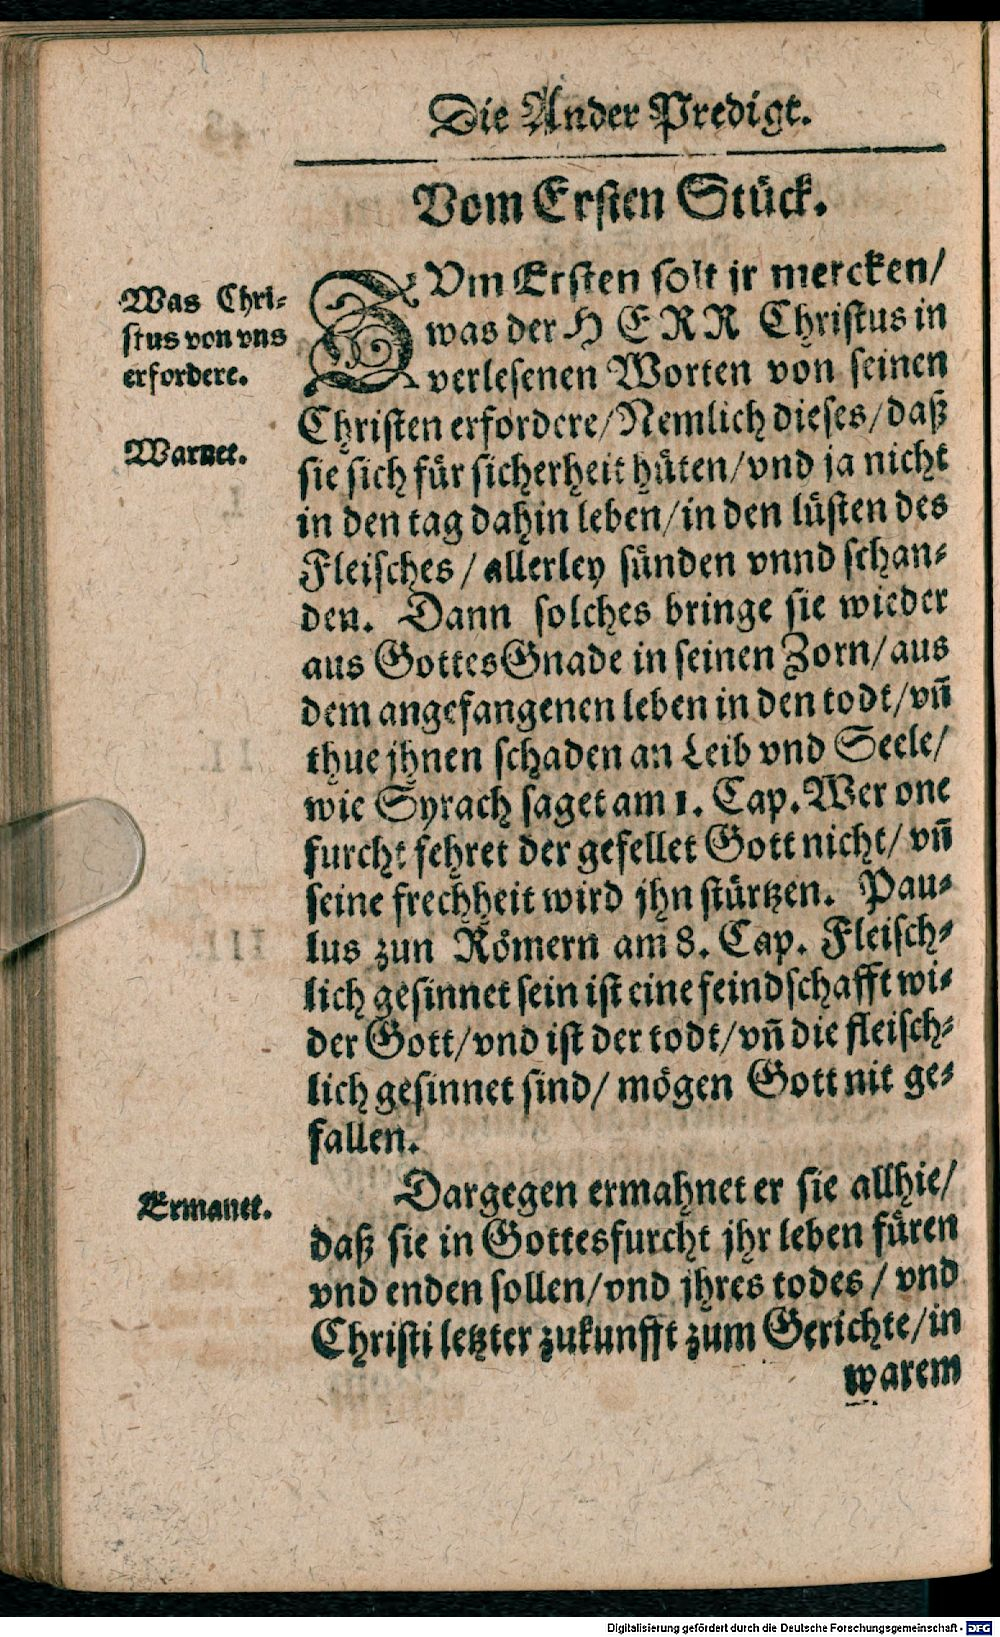 Die Ander Predigt.
Vom Ersten Stück.
Was Chri-
stus von vns
erfordere.
ZVm Ersten solt jr mercken/
was der HERR Christus in
verlesenen Worten von seinen
Christen erfordere/Nemlich dieses/daß
Warnet.
sie sich für sicherheit hüten/vnd ja nicht
in den tag dahin leben/in den lüsten des
Fleisches/allerley sünden vnnd schan-
den. Dann solches bringe sie wieder
aus Gottes Gnade in seinen Zorn/aus
dem angefangenen leben in den todt/vñ
thue jhnen schaden an Leib vnd Seele/
wie Syrach saget am 1. Cap. Wer one
furcht fehret der gefellet Gott nicht/vñ
seine frechheit wird jhn stürtzen. Pau-
lus zun Römern am 8. Cap. Fleisch-
lich gesinnet sein ist eine feindschafft wi-
der Gott/vnd ist der todt/vñ die fleisch-
lich gesinnet sind/mögen Gott nit ge-
fallen.
Ermanet.
Dargegen ermahnet er sie allhie/
daß sie in Gottesfurcht jhr leben füren
vnd enden sollen/vnd jhres todes/vnd
Christi letzter zukunfft zum Gerichte/in
warem
Digitalisierung gefördert durch die Deutsche Forschungsgemeinschaft - DFG